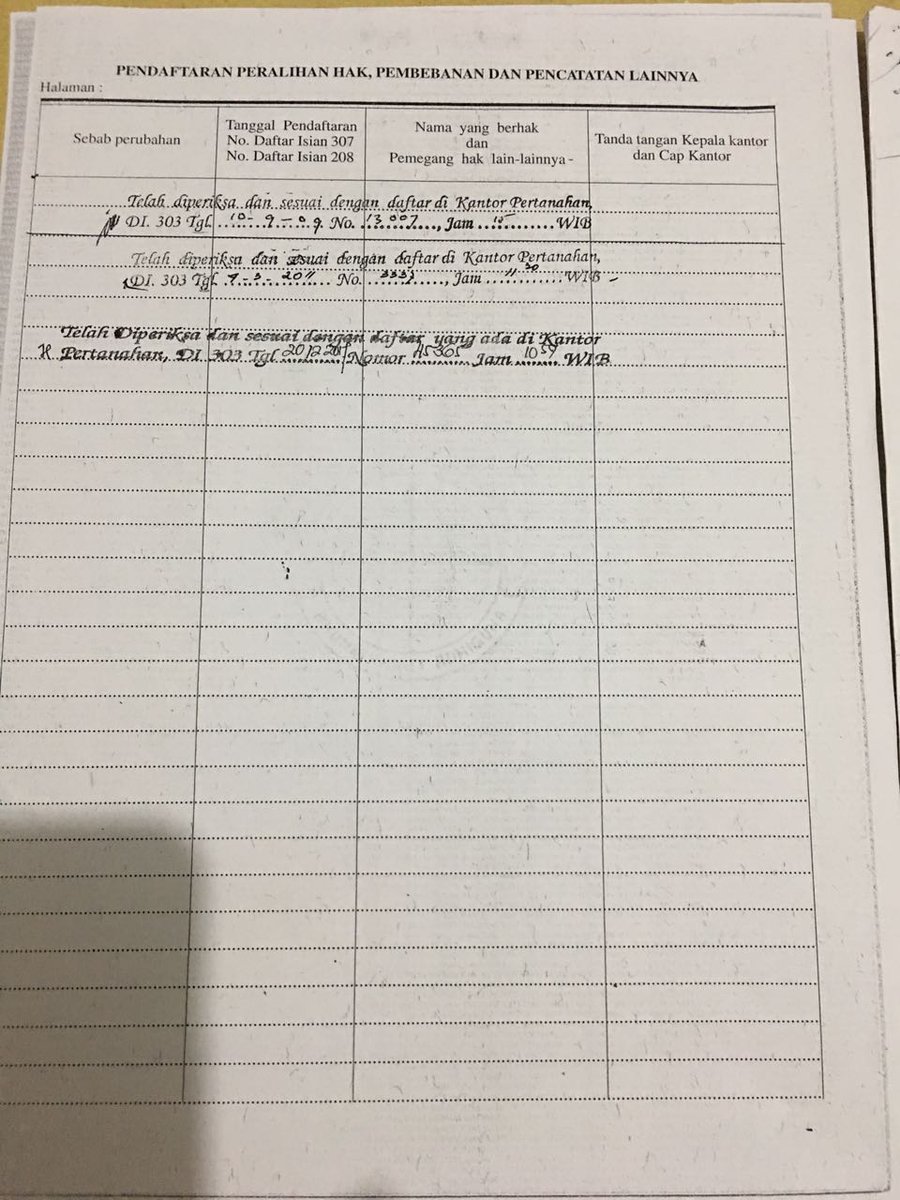 PENDAFTARAN PERALIHAN HAK, PEMBEBANAN DAN PENCATATAN LAINNYA
Halaman :
Sebab perubahan
Tanggal Pendaftaran
No. Daftar Isian 307
No. Daftar Isian 208
Nama yang berhak
dan
Pemegang hak lain-lainnya -
Tanda tangan Kepala kantor
dan Cap Kantor
Telah diperiksa dan sesuai dengan daftar di Kantor Pertanahan,
DI. 303 Tgl. 10-9-09. No. 13.007, Jam WIB
Telah diperiksa dan sesuai dengan daftar di Kantor Pertanahan,
DI. 303 Tgl 7-3-2011 No. 3333, Jam 11.30 WIB
Telah Diperiksa dan sesuai dengan daftar yang ada di Kantor
Pertanahan, DI 303 Tgl Nomor 45305 Jam 1059 WIB